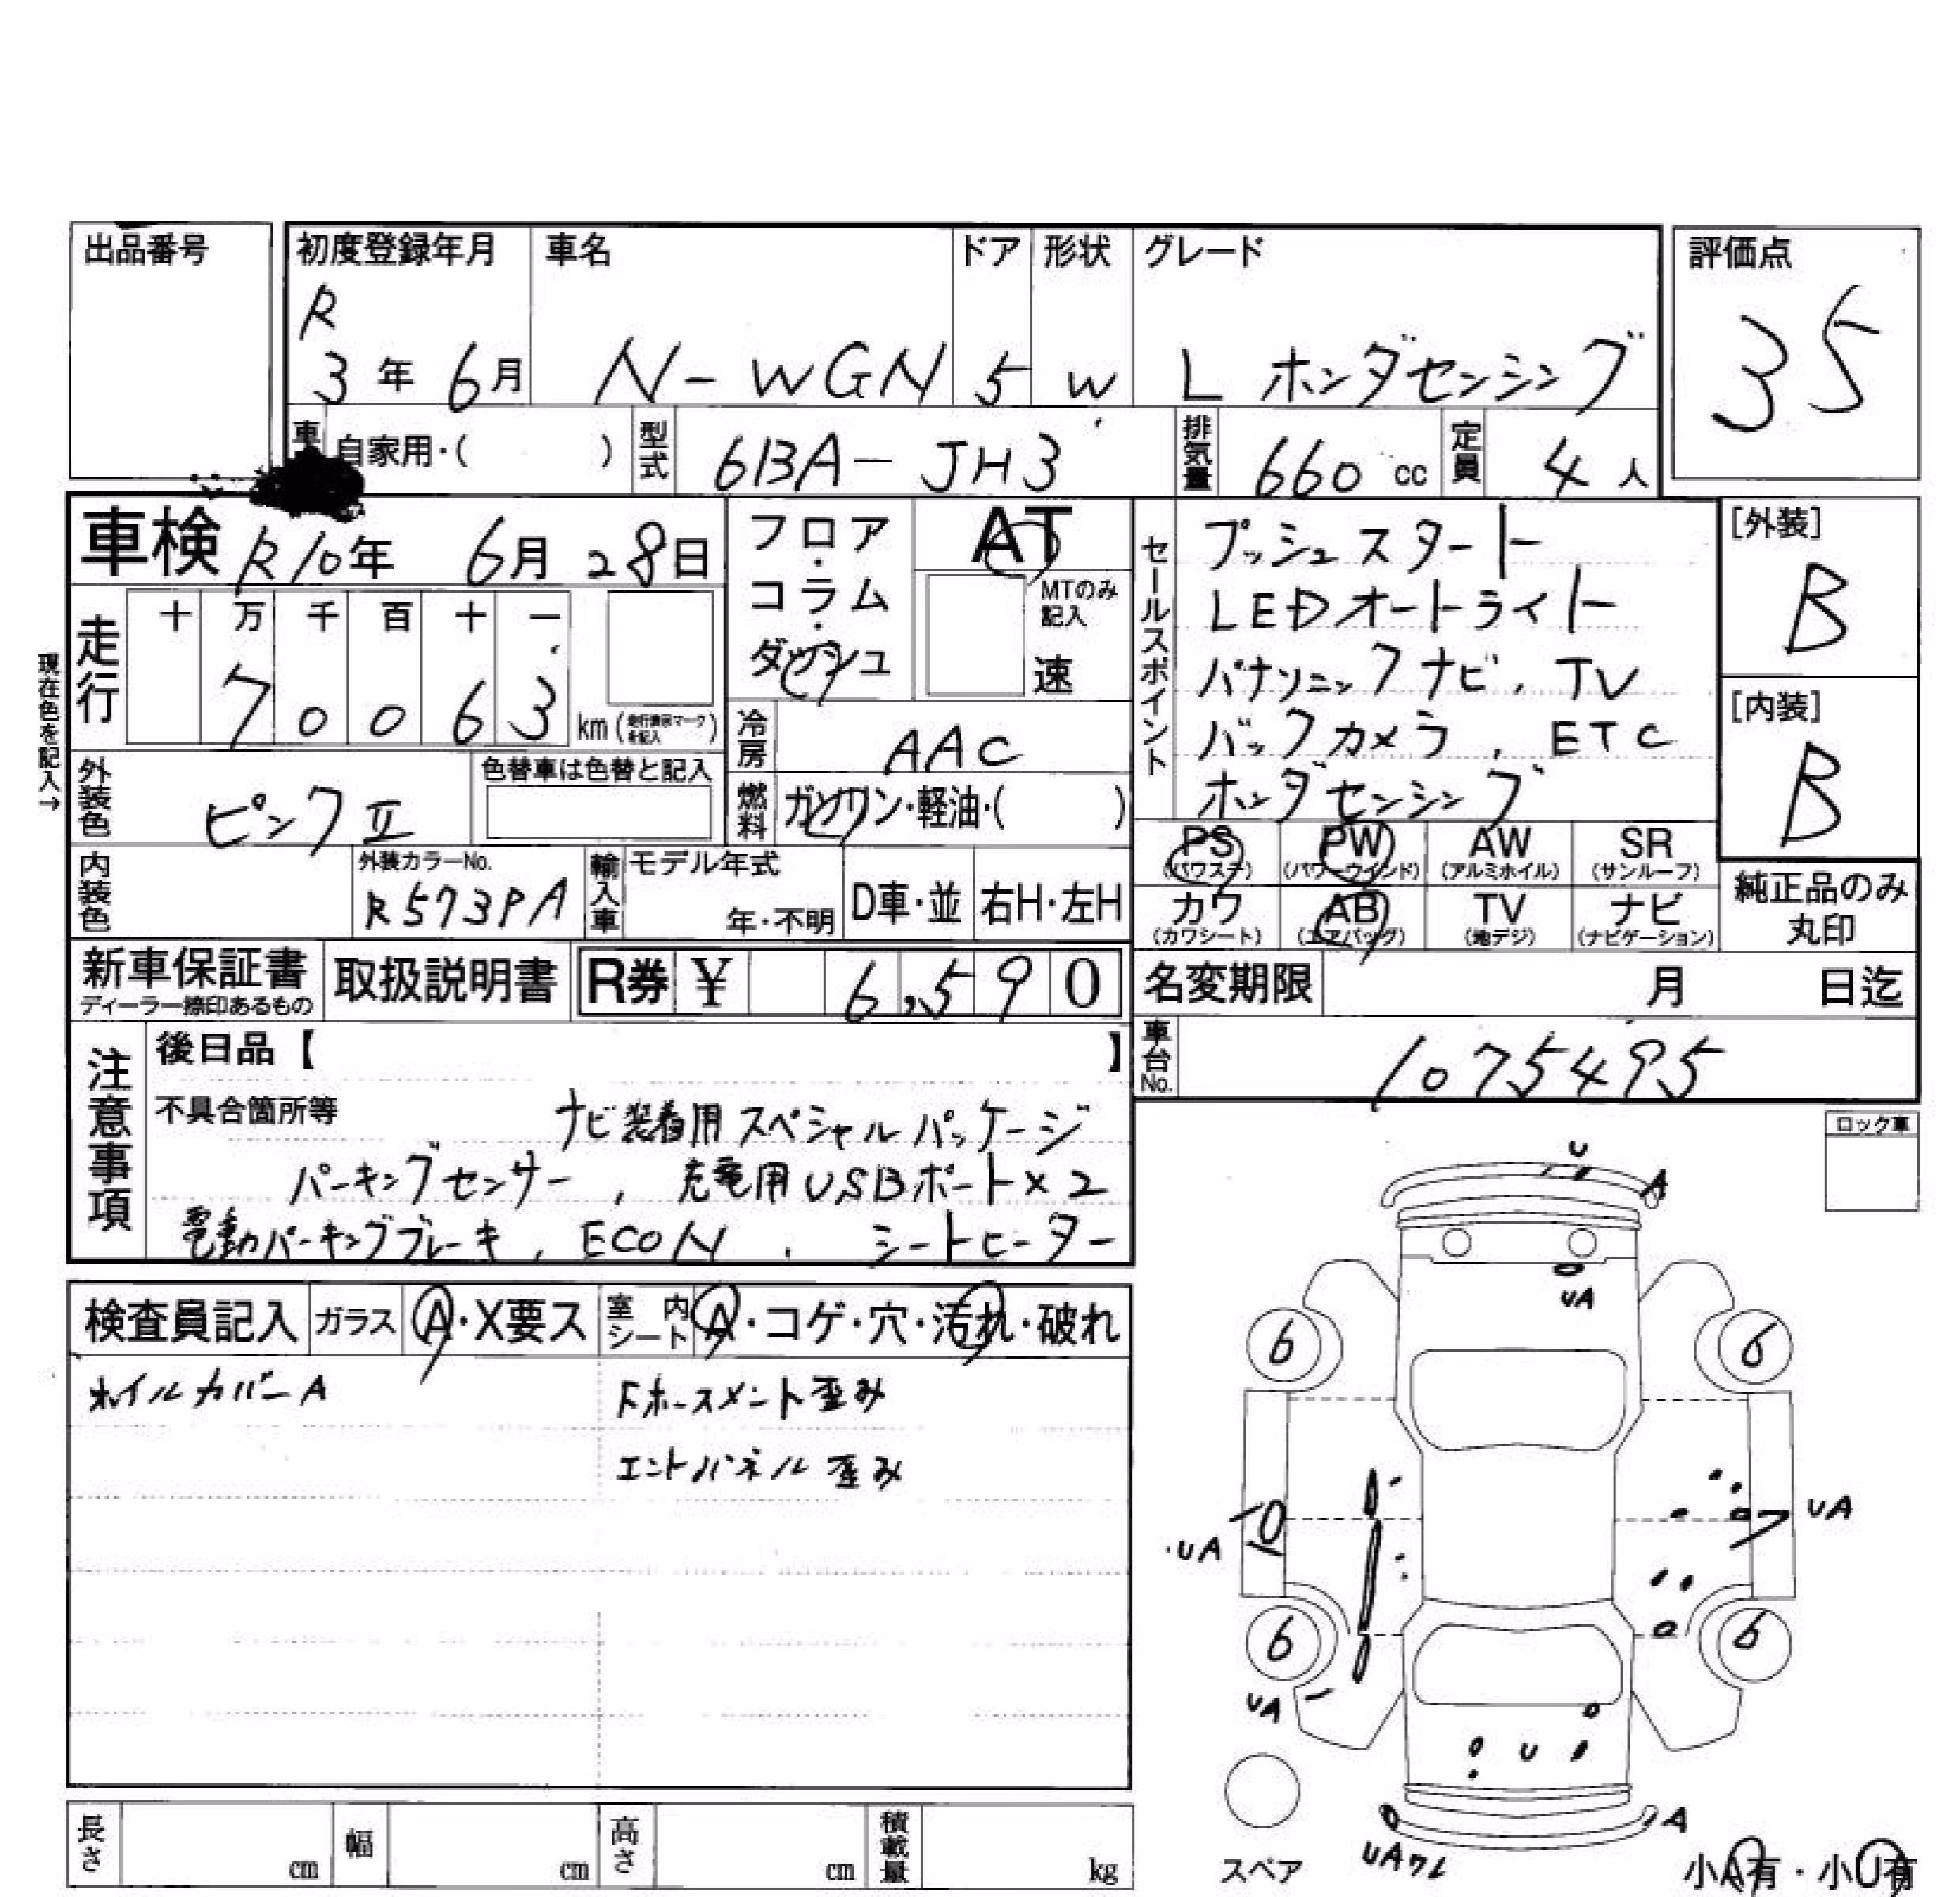 出品番号
初度登録年月
R
3年 6月
車名
N-WGN
ドア
5
形状
W
グレード
L ホンダセンシング
評価点
35
車
自家用・( )
型式
6BA-JH3
排気量
660 cc
定員
4 人
車検 R10年 6月 28日
現在色を記入→
走行
十 万 千 百 十 一
7 0 0 6 3
km (走行表示マークを記入)
フロア・コラム・ダッシュ
AT
MTのみ記入
速
冷房
AAC
燃料
ガソリン・軽油・( )
外装色
ピンクII
色替車は色替と記入
内装色
外装カラーNo.
R573PA
輸入車
モデル年式
年・不明
D車・並
右H・左H
セールスポイント
プッシュスタート
LEDオートライト
パナソニックナビ, TV
バックカメラ, ETC
ホンダセンシング
[外装]
B
[内装]
B
PS PW AW SR
(パワステ) (パワーウインド) (アルミホイル) (サンルーフ)
カワ AB TV ナビ
(カワシート) (エアバッグ) (地デジ) (ナビゲーション)
純正品のみ
丸印
新車保証書
ディーラー捺印あるもの
取扱説明書
R券 ¥ 6,590
名変期限 月 日迄
車台No.
1075495
注意事項
後日品【 】
不具合箇所等
ナビ装着用スペシャルパッケージ
パーキングセンサー, 充電用USBポート×2
電動パーキングブレーキ, ECON, シートヒーター
ロック車
検査員記入
ガラス
A・X要ス
室内シート
A・コゲ・穴・汚れ・破れ
ホイルカバーA
Fホースメント歪み
エンドパネル歪み
U
A
UA
6
6
UA
UA
6
6
UA
U
UAワレ
A
スペア
小A有・小U有
長さ cm
幅 cm
高さ cm
積載量 kg